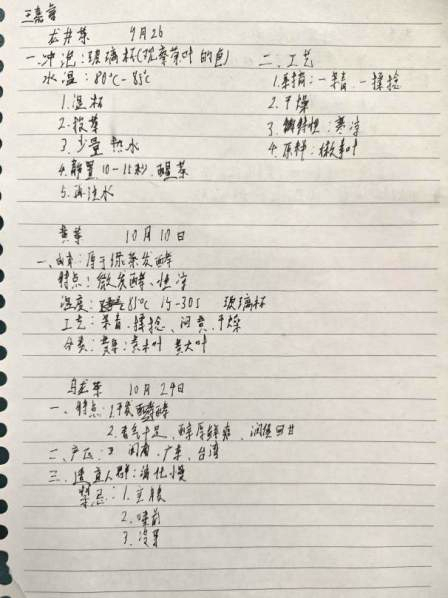 龙井茶 9月26
一.冲泡:玻璃杯(观察茶叶的色)
水温:80℃-85℃
1.温杯
2.投茶
3.少量热水
4.静置10-15秒.醒茶
5.再注水
二.工艺
1.采摘:一杀青.一揉捻
2.干燥
3.特性:寒凉
4.原料:嫩芽叶
黄茶 10月10日
一、由来:属于绿茶发酵
特点:微发酵、性凉
温度:85℃ 15-30s 玻璃杯
工艺:杀青.揉捻、闷黄.干燥
分类:黄芽:黄小叶 黄大叶
乌龙茶 10月24日
一、特点:1.半发酵
2.香气十足、醇厚鲜爽、润喉回甘
二、产区:闽南.广东.台湾
三.适宜人群:消化慢
禁忌:1.空腹
2.睡前
3.冷茶